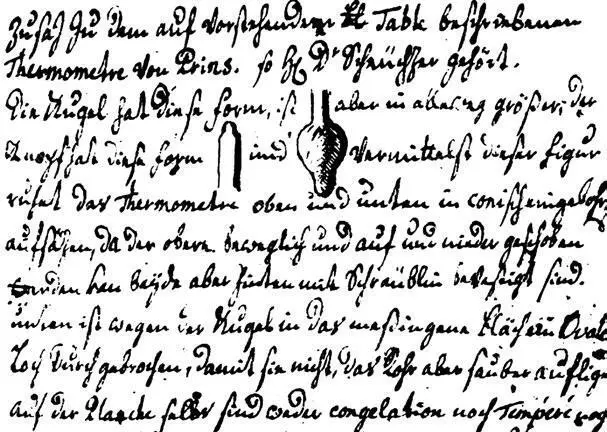 Zusaz zu dem auf vorstehendem Table beschriebenen
Thermometre von Prins. so H. Dr Scheüchzer gehört.
Die Kugel hat diese form, ist aber in allweg größer, der
Knopf hat diese form und vermittelst dieser figur
ruhet das Thermometre oben und unten in
aufsäzen, da der obere beweglich und auf und nieder geschoben
werden kan beÿde aber hinten mit Schraüblin bevestigt sind.
unten ist wegen der Kugel in das meßingene blächlin Oval
Loch durchgebrochen, damit sie nicht, das Rohr aber sauber auflige
auf der Planche selbs sind weder congelation noch Temperé